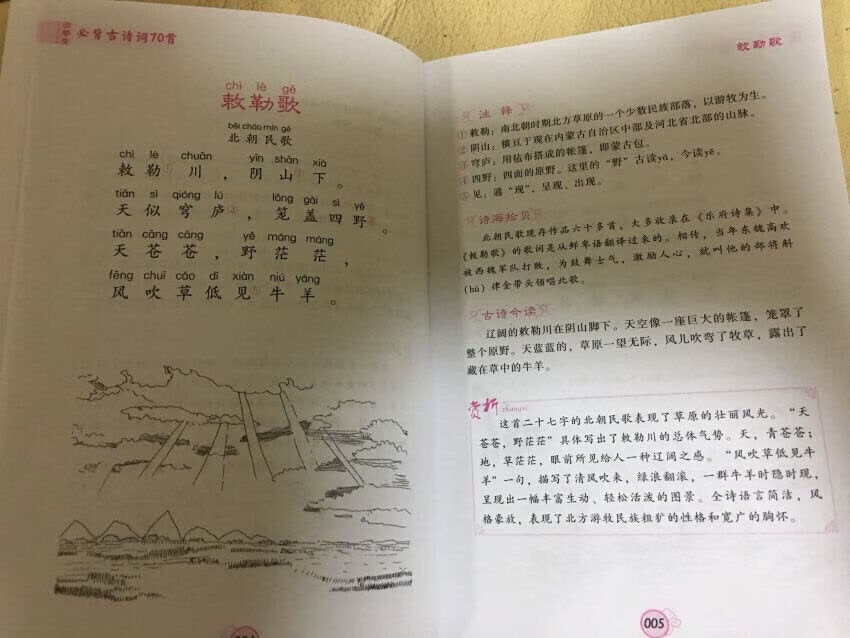 小学生必背古诗词70首
chì lè gē
敕勒歌
běi cháo mín gē
北朝民歌
chì lè chuān yīn shān xià
敕勒川，阴山下。
tiān sì qióng lú lǒng gài sì yě
天似穹庐，笼盖四野。
tiān cāng cāng yě máng máng
天苍苍，野茫茫，
fēng chuī cǎo dī xiàn niú yáng
风吹草低见牛羊。
敕勒歌
注释
①敕勒：南北朝时期北方草原的一个少数民族部落，以游牧为生。
②阴山：横亘于现在内蒙古自治区中部及河北省北部的山脉。
③穹庐：用毡布搭成的帐篷，即蒙古包。
④四野：四面的原野。这里的“野”古读yǎ，今读yě。
⑤见：通“现”，呈现、出现。
诗海拾贝
北朝民歌现存作品六十多首，大多收录在《乐府诗集》中。
《敕勒歌》的歌词是从鲜卑语翻译过来的。相传，当年东魏高欢
被西魏军队打败，为鼓舞士气，激励人心，就叫他的部将斛
(hú) 律金带头领唱此歌。
古诗今读
辽阔的敕勒川在阴山脚下。天空像一座巨大的帐篷，笼罩了
整个原野。天蓝蓝的，草原一望无际，风儿吹弯了牧草，露出了
藏在草中的牛羊。
赏析 shangxi
这首二十七字的北朝民歌表现了草原的壮丽风光。“天
苍苍，野茫茫”具体写出了敕勒川的总体气势。天，青苍苍；
地，草茫茫，眼前所见给人一种辽阔之感。“风吹草低见牛
羊”一句，描写了清风吹来，绿浪翻滚，一群牛羊时隐时现，
呈现出一幅丰富生动、轻松活泼的图景。全诗语言简洁，风
格豪放，表现了北方游牧民族粗犷的性格和宽广的胸怀。
005